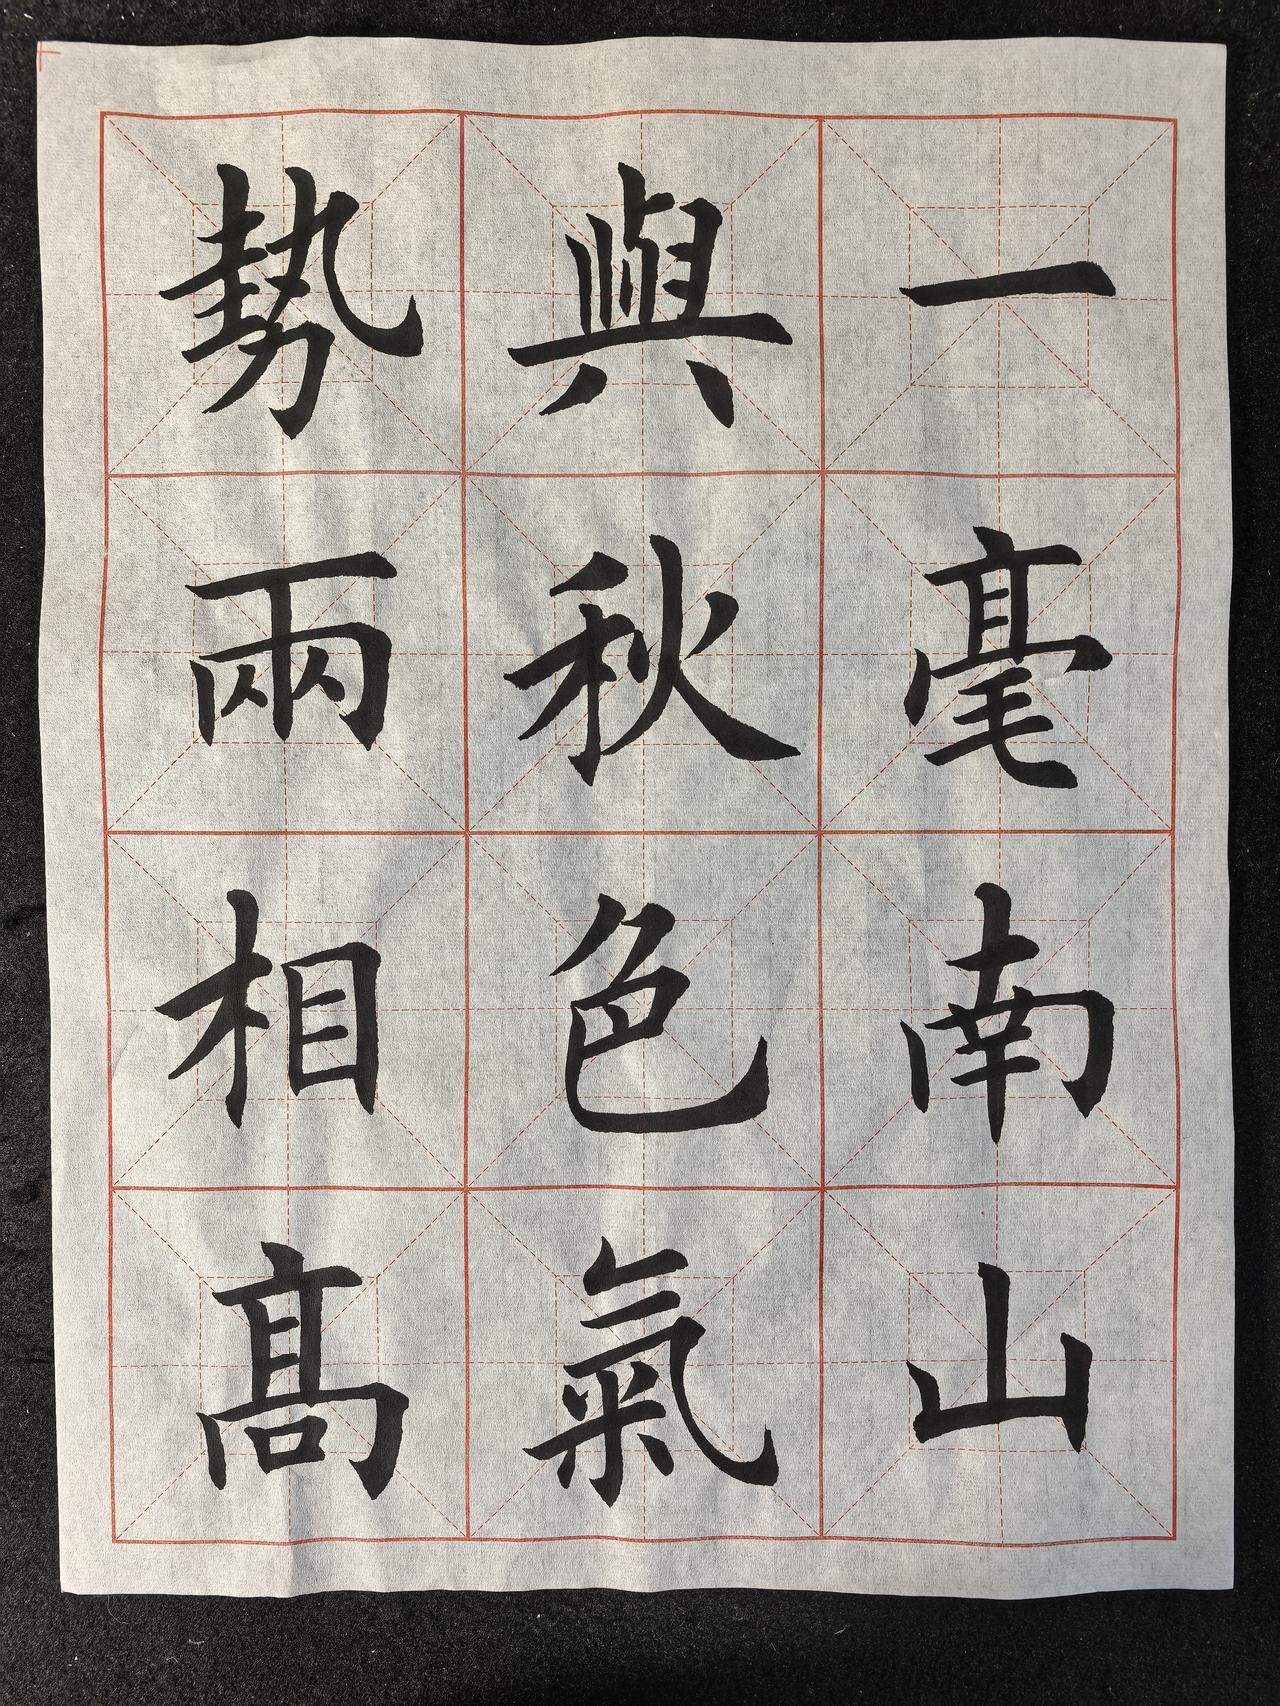 一毫南山
與秋色氣
勢兩相高